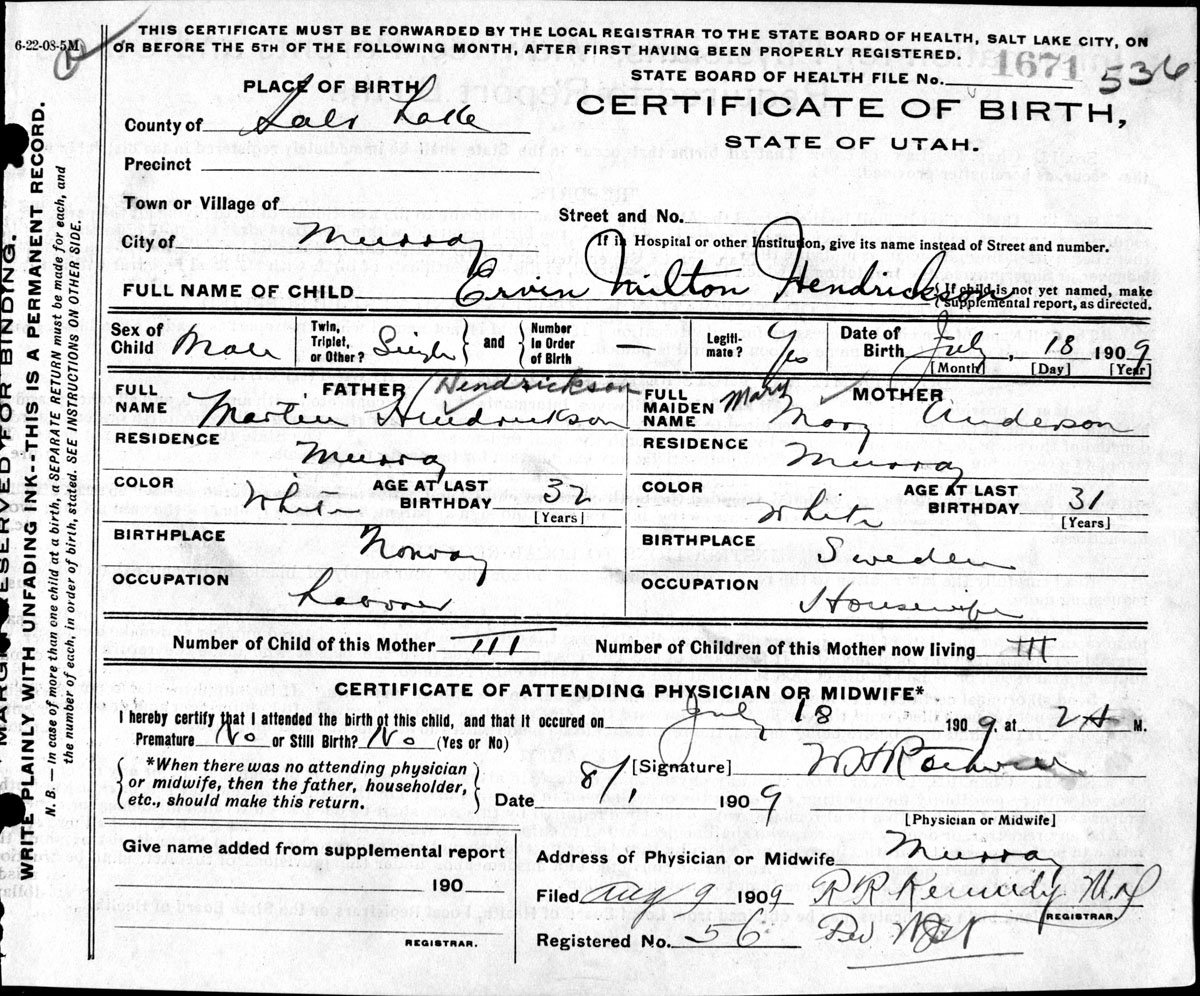 THIS CERTIFICATE MUST BE FORWARDED BY THE LOCAL REGISTRAR TO THE STATE BOARD OF HEALTH, SALT LAKE CITY, ON
6-22-08-5M
OR BEFORE THE 5TH OF THE FOLLOWING MONTH, AFTER FIRST HAVING BEEN PROPERLY REGISTERED.
STATE BOARD OF HEALTH FILE No. 1671 536
PLACE OF BIRTH
CERTIFICATE OF BIRTH,
County of Salt Lake
STATE OF UTAH.
Precinct
Town or Village of
Street and No.
City of Murray
If in Hospital or other Institution, give its name instead of Street and number.
FULL NAME OF CHILD Ervin Milton Hendrickson
{ If child is not yet named, make
supplemental report, as directed.
Sex of Child Male
Twin, Triplet, or Other? Single } and { Number In Order of Birth —
Legiti-mate? Yes
Date of Birth July, 18 1909
[Month] [Day] [Year]
FATHER Hendrickson
FULL NAME Martin Hendrickson
MOTHER
FULL MAIDEN NAME Mary Mary Anderson
RESIDENCE Murray
RESIDENCE Murray
COLOR White
AGE AT LAST BIRTHDAY 32
[Years]
COLOR White
AGE AT LAST BIRTHDAY 31
[Years]
BIRTHPLACE Norway
BIRTHPLACE Sweden
OCCUPATION Laborer
OCCUPATION Housewife
Number of Child of this Mother III
Number of Children of this Mother now living III
CERTIFICATE OF ATTENDING PHYSICIAN OR MIDWIFE*
I hereby certify that I attended the birth of this child, and that it occured on July 18 1909 at 2 A M.
Premature No or Still Birth? No (Yes or No)
{ *When there was no attending physician
or midwife, then the father, householder,
etc., should make this return. }
[Signature]
Date 8/1 1909
[Physician or Midwife]
Give name added from supplemental report
190
REGISTRAR.
Address of Physician or Midwife Murray
Filed Aug 9 1909 R R Kennedy M D
REGISTRAR.
Registered No. 56
MARGIN RESERVED FOR BINDING.
WRITE PLAINLY WITH UNFADING INK--THIS IS A PERMANENT RECORD.
N. B. — In case of more than one child at a birth, a SEPARATE RETURN must be made for each, and
the number of each, in order of birth, stated. SEE INSTRUCTIONS ON OTHER SIDE.